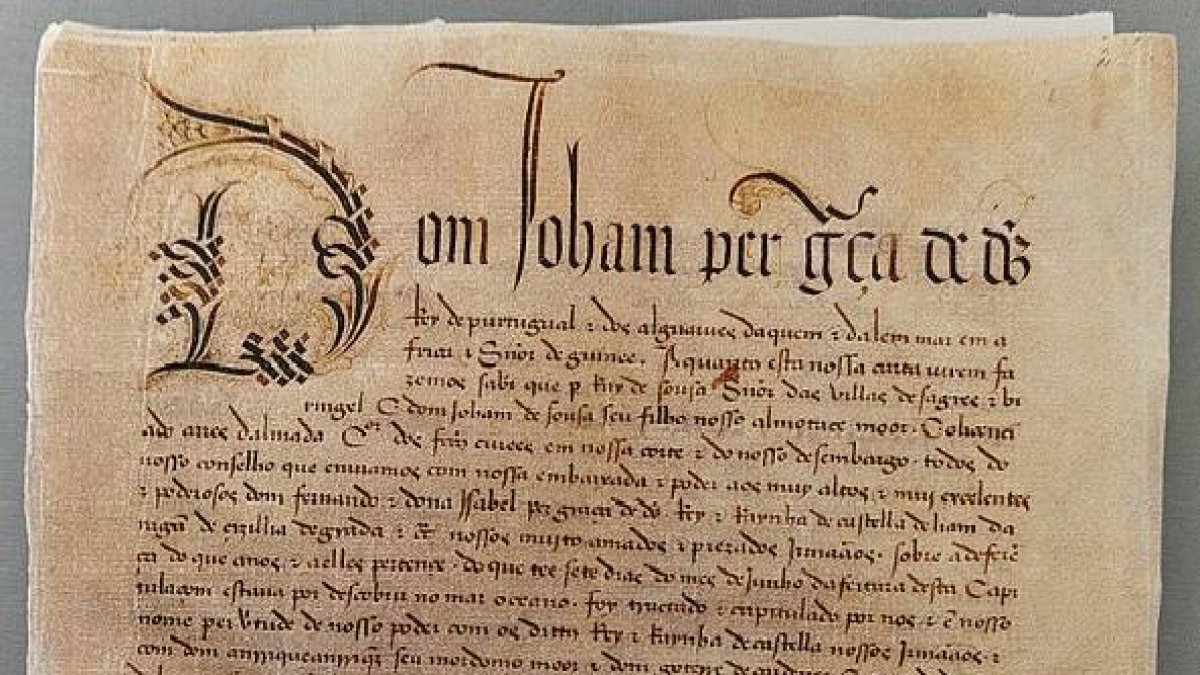 Dom Joham per gça de ds
Rey de purtugual & dos alguarues daquem & dalem mar em a
frica & Snor de guinee. A quantos esta nossa carta virem fa
zemos saber que per Ruy de sousa Snor das villas de sagres & bi
ringel E dom Joham de sousa seu filho nosso almotace moor. E o licenci
ado ayres dalmada Cor dos fectos ciuees em nossa corte & do nosso desembargo. todos do
nosso conselho que enuiamos com nossa embaixada & poder aos muy altos & muy excelentes
& poderosos dom fernando & dona Isabel per graça de ds Rey & Raynha de castella de liam da
ragã de cizilia de grada & cª nossos muyto amados & prezados Irmãaos. sobre a deferẽ
ça do que a nos & a elles pertence. do que tee sete dias do mes de Junho da feitura desta Capi
tulaçom estaua por descobrir no mar oceano. foy trautado & capitulado por nos & ẽ nosso
nome per vtude de nosso poder com os dittos Rey & Raynha de castella nossos Irmãaos &
com dom anrrique anrriqz seu mordomo moor & dom goterre de